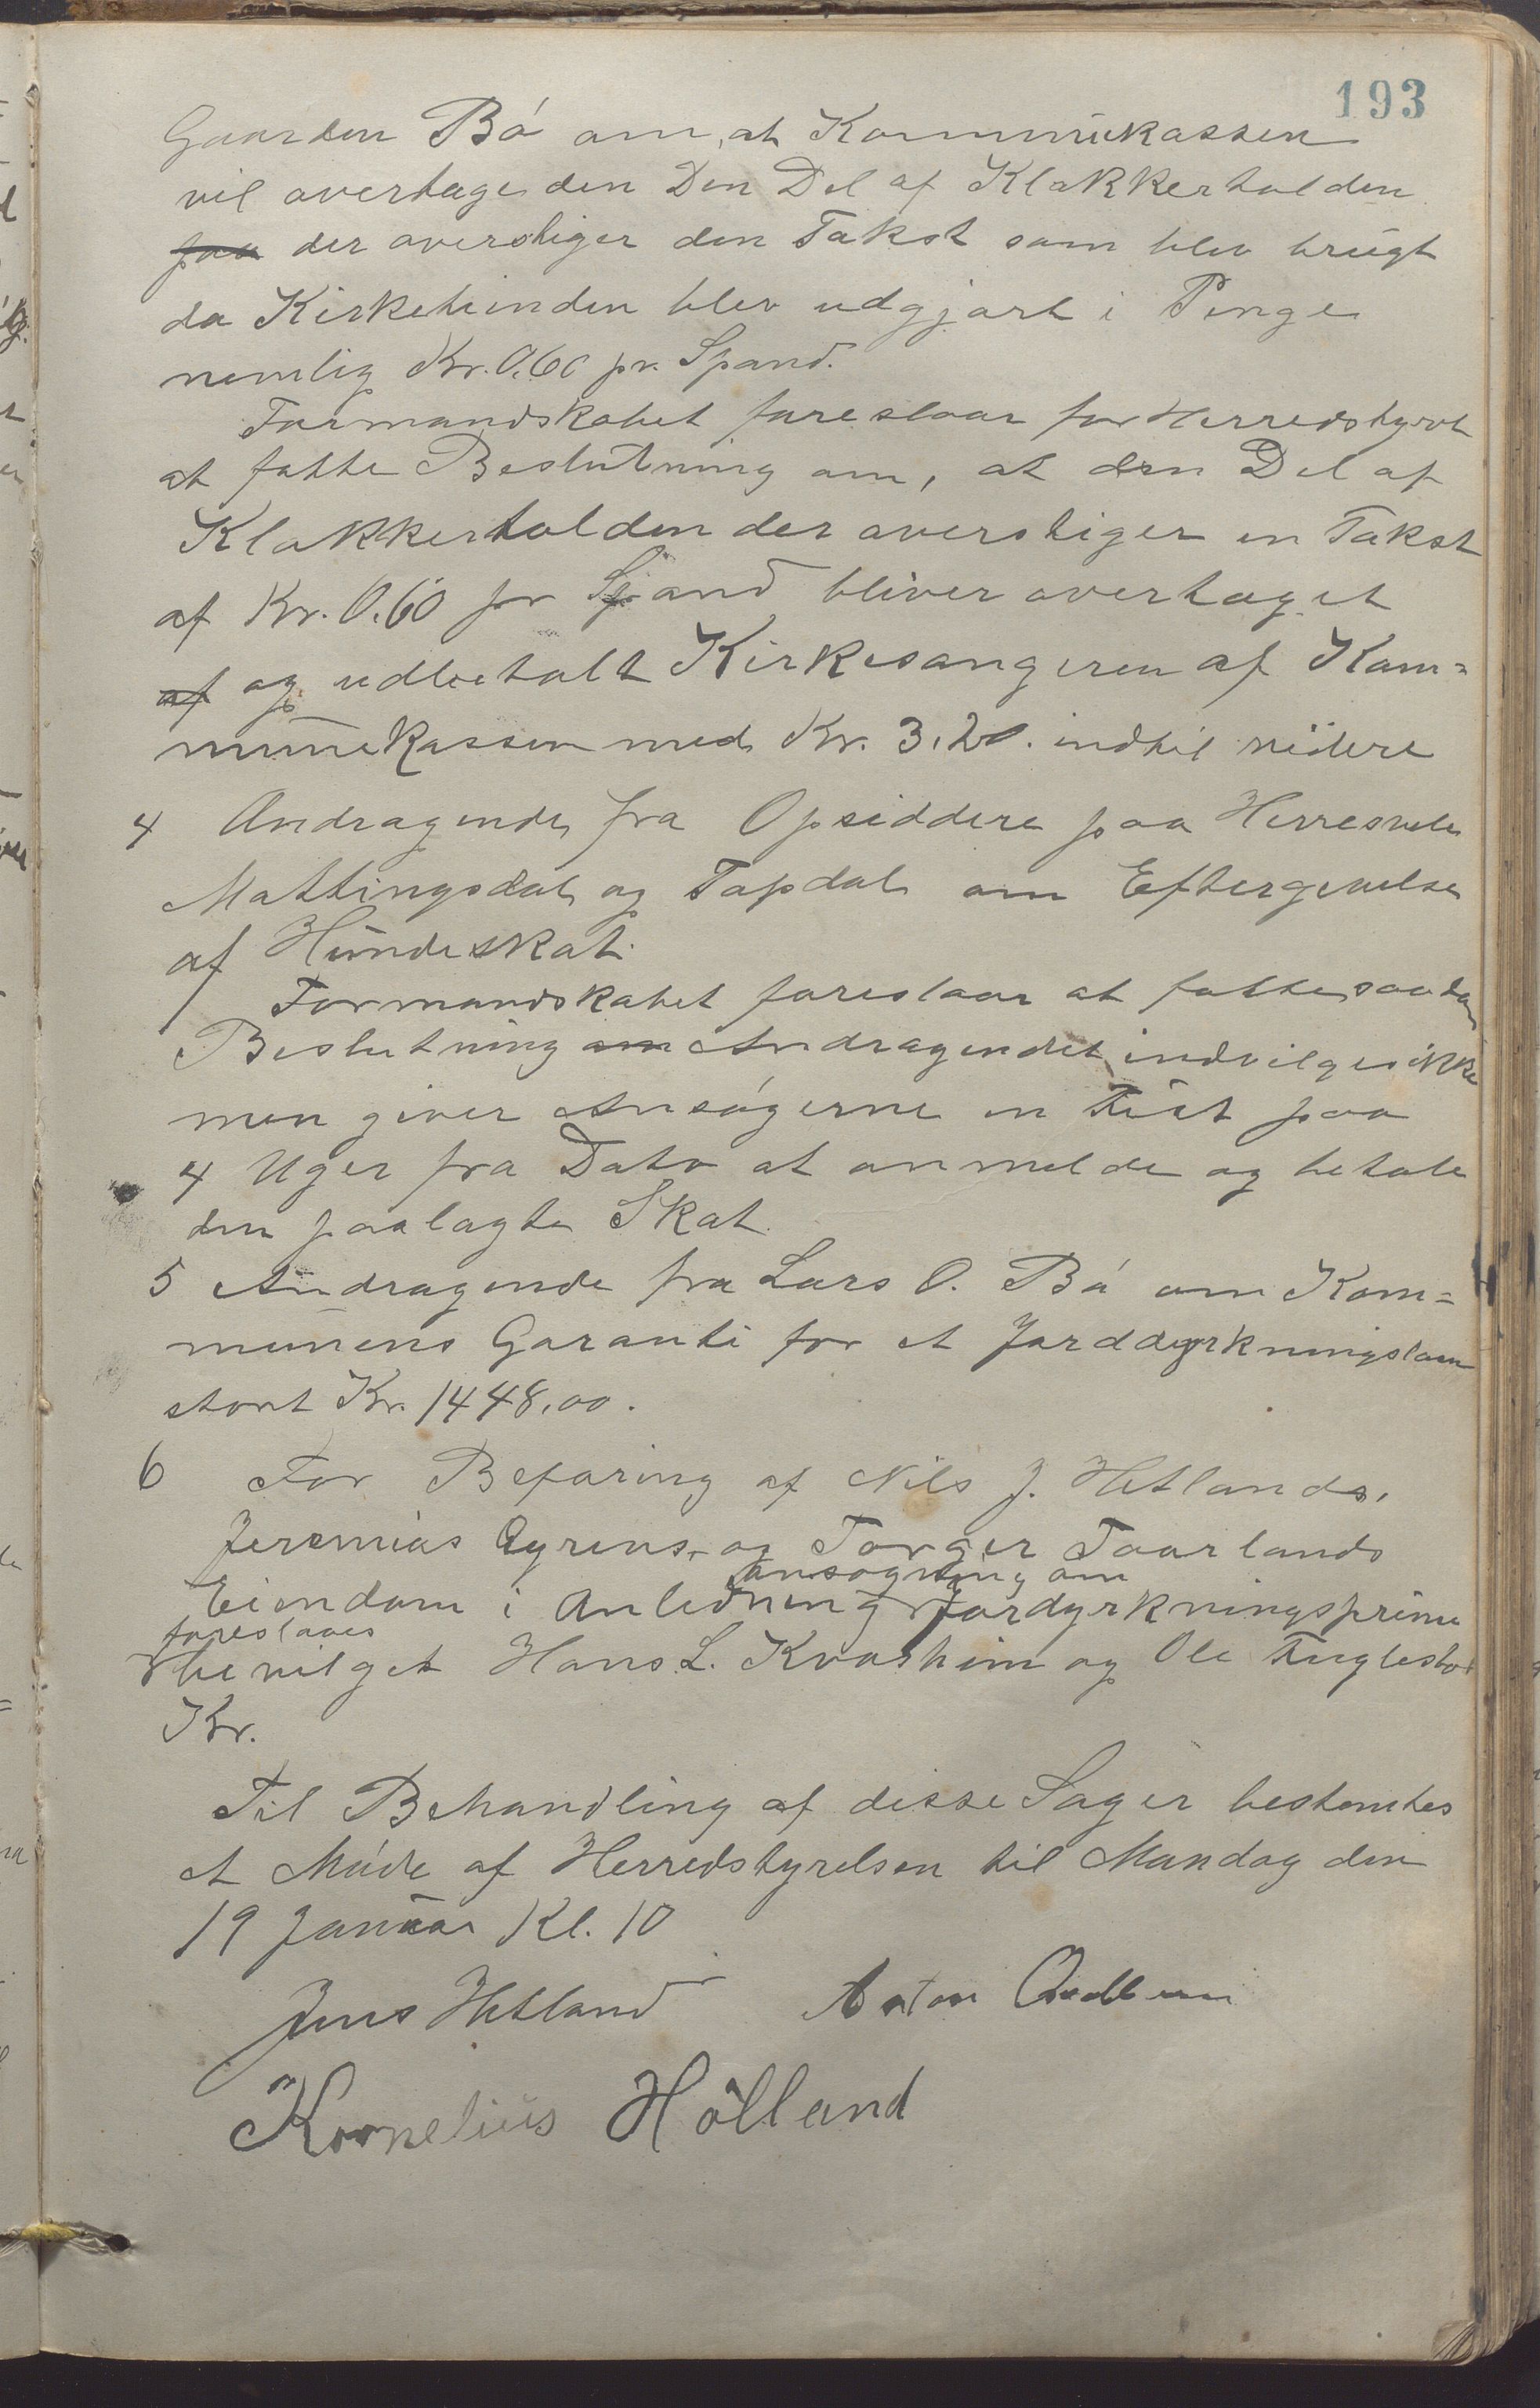 193
Gaarden Bö om, at Kommunekassen
vil overtage den Den Del af Klokkertolden
paa der overstiger den Takst som blev brugt
da Kirketienden blev udgjort i Penge
nemlig Kr. 0.60 pr. Spand.
Formandskabet foreslaar for Herredstyret
at fatte Beslutning om, at den Del af
Klokkertolden der overstiger en Takst
af Kr. 0.60 pr Spand bliver overtaget
af og udbetalt Kirkesangeren af Kom=
munekassen med Kr. 3.20. indtil videre
4 Andragende fra Opsiddere paa Herresvela
Mattingsdal og Topdal om Eftergivelse
af Hundeskat.
Formandskabet foreslaar at fatte saadan
Beslutning om Andragendet indvilges ikke
men giver Ansögerne en Frist paa
4 Uger fra Dato at anmelde og betale
den paalagte Skat.
5 Andragende fra Lars O. Bö om Kom=
munens Garanti for et Jorddyrkningslaan
stort Kr. 1448,00.
6 For Befaring af Nils J. Hetlands,
Jeremias Ogrens, og Torger Taarlands
ansogning om
Eiendom i Anledning Jordyrkningsprime
foreslaaes
bevilget Hans L. Kvasheim og Ole Fuglestad
Kr.
Til Behandling af disse Sager bestemtes
et Möde af Herredstyrelsen til Mandag den
19 Januar Kl. 10
Jens Hetland Anton
Kornelius Hölland